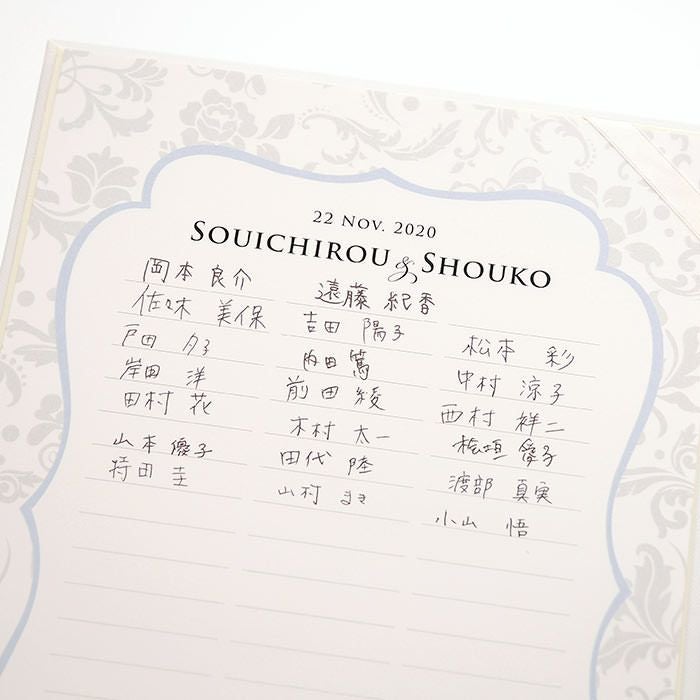 22 NOV. 2020
SOUICHIROU & SHOUKO
岡本 良介
佐々木 美保
戸田 月子
岸田 洋
田村 花
山本 優子
持田 圭
遠藤 紀香
吉田 陽子
内田 篤
前田 綾
木村 太一
田代 陸
山村 まき
松本 彩
中村 涼子
西村 祥二
桧垣 愛子
渡部 真実
小山 悟